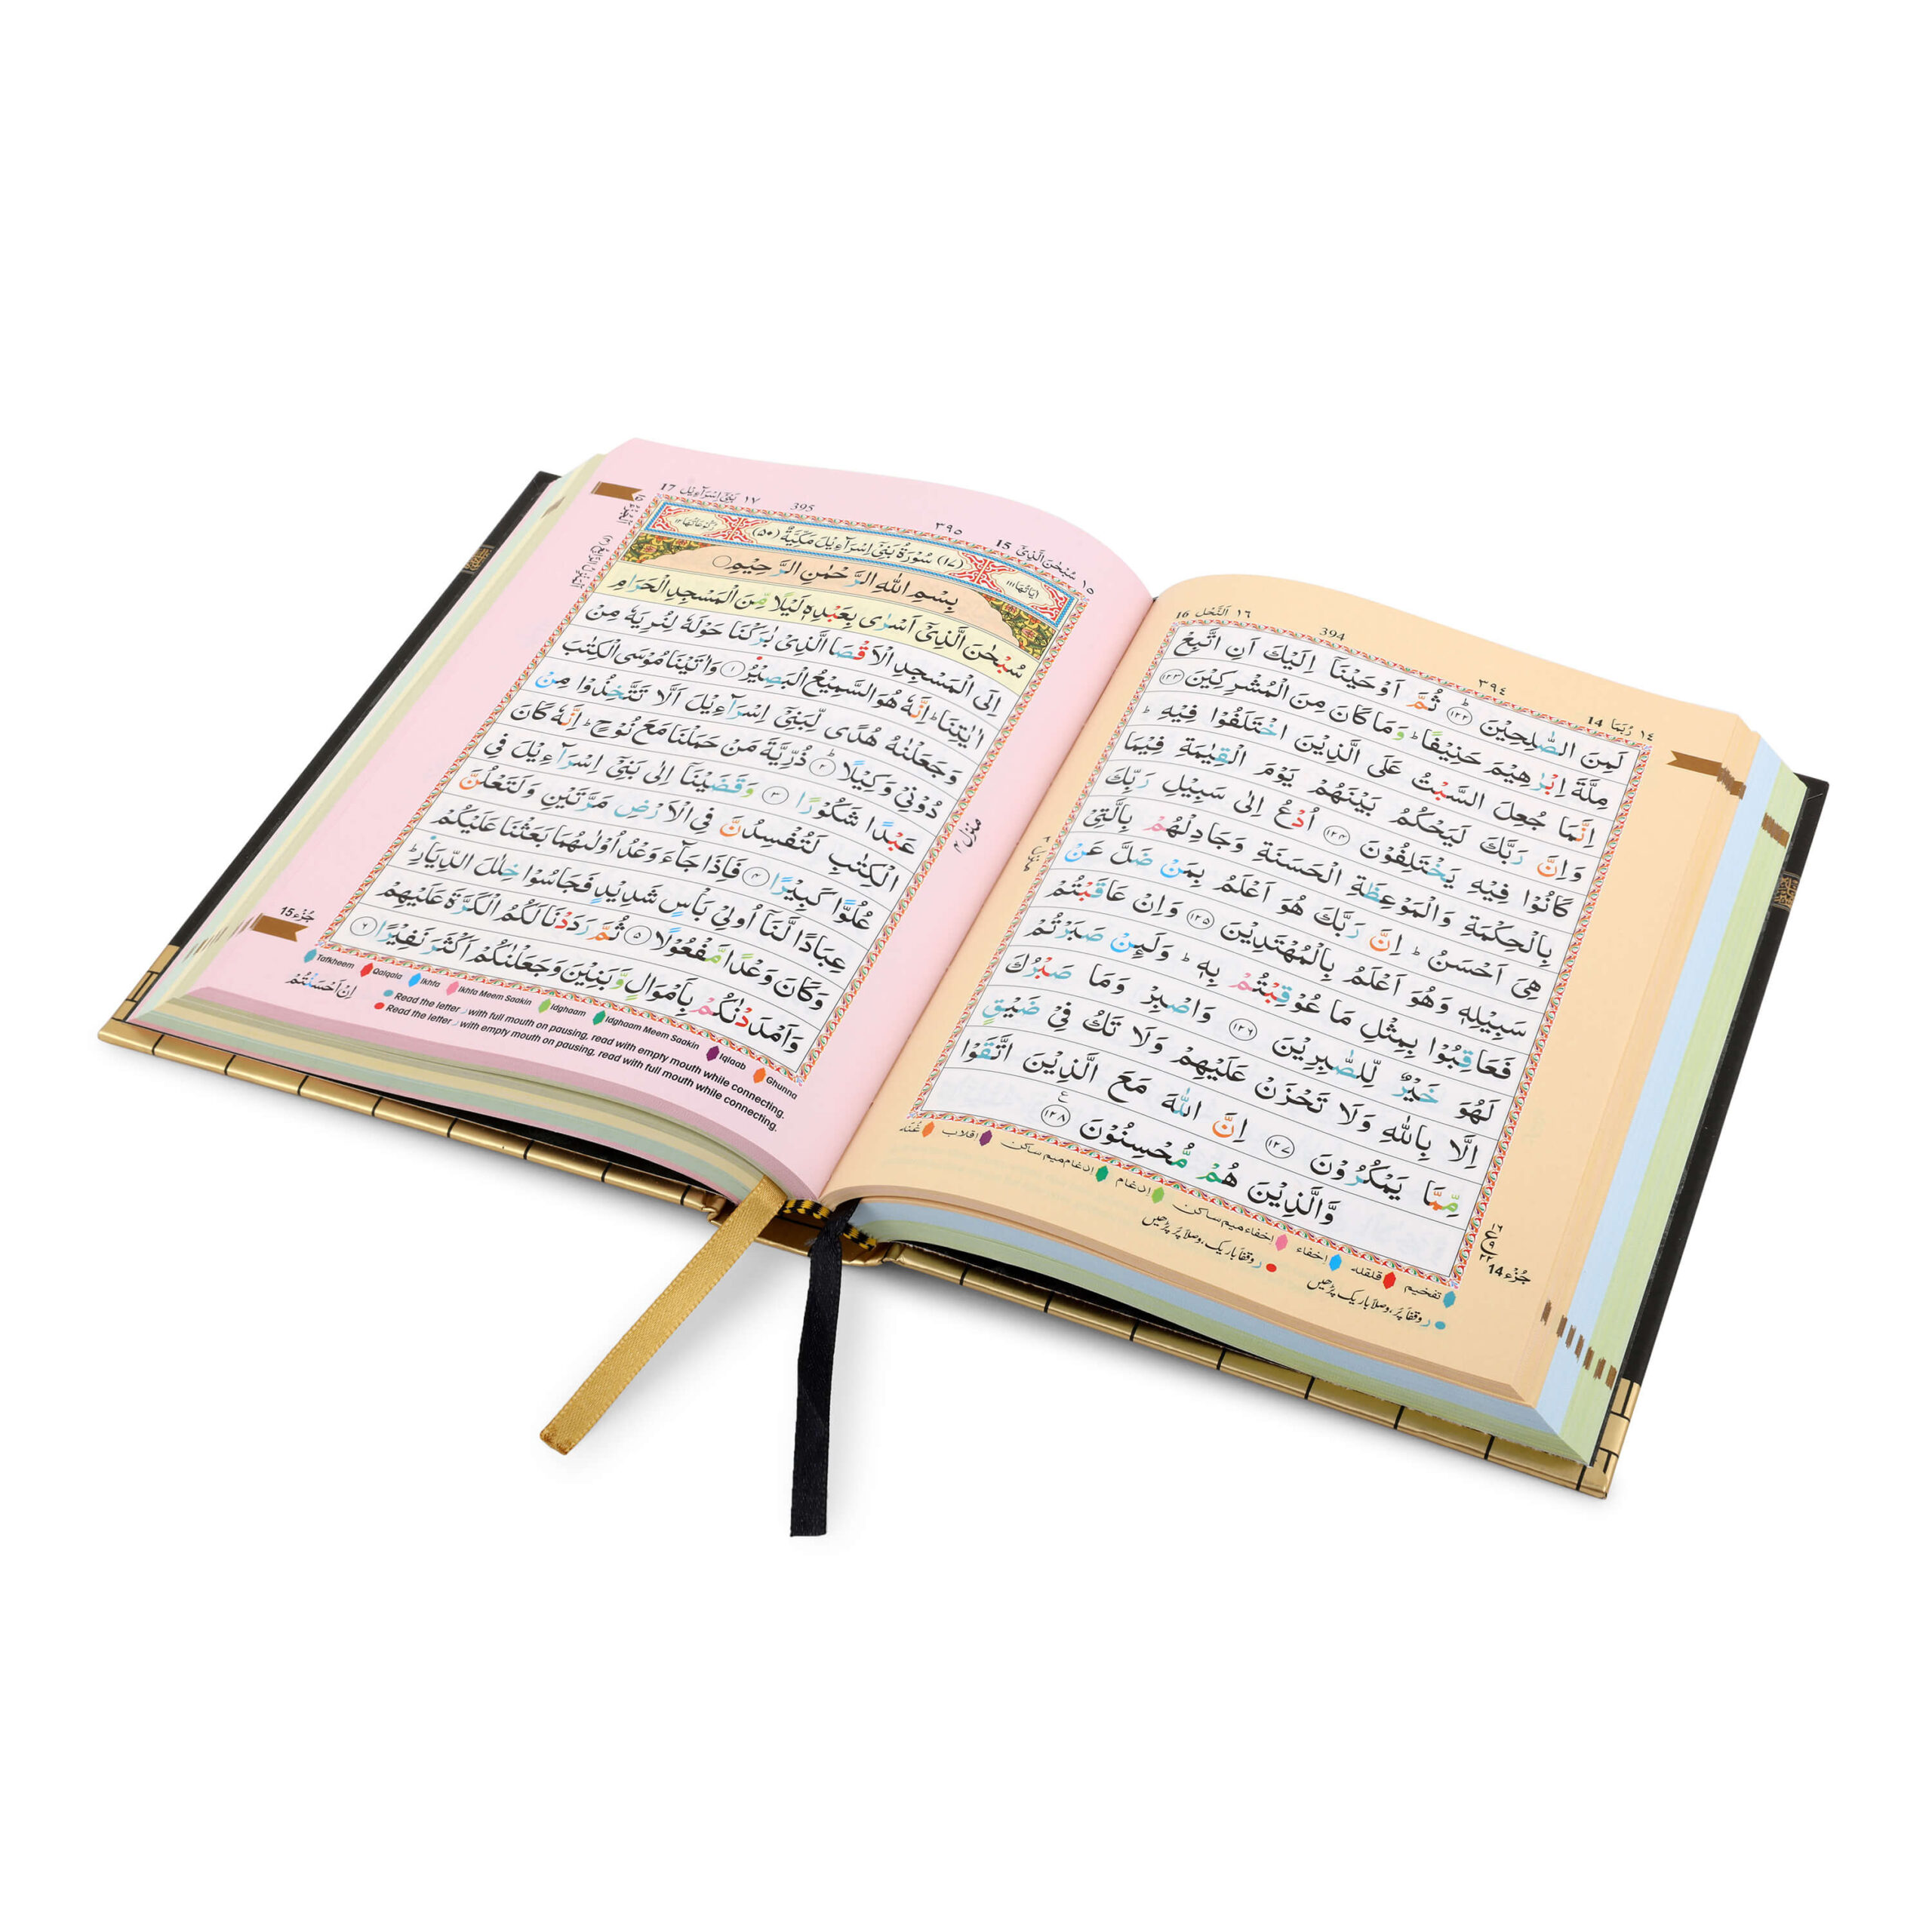 ١٤ رُبَمَا 14
٣٩٤
394
١٦ اَلنَّحْل 16
لَمِنَ الصّٰلِحِيْنَ ؕ ١٢٢ ثُمَّ اَوْحَيْنَاۤ اِلَيْكَ اَنِ اتَّبِعْ
مِلَّةَ اِبْرٰهِيْمَ حَنِيْفًا ؕ وَمَا كَانَ مِنَ الْمُشْرِكِيْنَ ١٢٣
اِنَّمَا جُعِلَ السَّبْتُ عَلَى الَّذِيْنَ اخْتَلَفُوْا فِيْهِ ؕ
وَاِنَّ رَبَّكَ لَيَحْكُمُ بَيْنَهُمْ يَوْمَ الْقِيٰمَةِ فِيْمَا
كَانُوْا فِيْهِ يَخْتَلِفُوْنَ ١٢٤ اُدْعُ اِلٰى سَبِيْلِ رَبِّكَ
بِالْحِكْمَةِ وَالْمَوْعِظَةِ الْحَسَنَةِ وَجَادِلْهُمْ بِالَّتِيْ
هِيَ اَحْسَنُ ؕ اِنَّ رَبَّكَ هُوَ اَعْلَمُ بِمَنْ ضَلَّ عَنْ
سَبِيْلِهٖ وَهُوَ اَعْلَمُ بِالْمُهْتَدِيْنَ ١٢٥ وَاِنْ عَاقَبْتُمْ
فَعَاقِبُوْا بِمِثْلِ مَا عُوْقِبْتُمْ بِهٖ ؕ وَلَئِنْ صَبَرْتُمْ
لَهُوَ خَيْرٌ لِّلصّٰبِرِيْنَ ١٢٦ وَاصْبِرْ وَمَا صَبْرُكَ
اِلَّا بِاللّٰهِ وَلَا تَحْزَنْ عَلَيْهِمْ وَلَا تَكُ فِيْ ضَيْقٍ
مِّمَّا يَمْكُرُوْنَ ١٢٧ اِنَّ اللّٰهَ مَعَ الَّذِيْنَ اتَّقَوْا
وَّالَّذِيْنَ هُمْ مُّحْسِنُوْنَ ١٢٨
جُزْء 14
تفخيم قلقله إخفاء إخفاء ميم ساكن إدغام إدغام ميم ساكن إقلاب غُنه
ر وقفاً پُر، وصلاً باریک پڑھیں ر وقفاً باریک، وصلاً پُر پڑھیں
١٥ سُبْحٰنَ الَّذِيْۤ 15
٣٩٥
395
١٧ بَنِيْۤ اِسْرَآءِيْل 17
اٰيَاتُهَا ١١١ (١٧) سُوْرَةُ بَنِيْۤ اِسْرَآءِيْلَ مَكِّيَّةٌ (٥٠) رُكُوْعَاتُهَا ١٢
بِسْمِ اللّٰهِ الرَّحْمٰنِ الرَّحِيْمِ
سُبْحٰنَ الَّذِيْۤ اَسْرٰى بِعَبْدِهٖ لَيْلًا مِّنَ الْمَسْجِدِ الْحَرَامِ
اِلَى الْمَسْجِدِ الْاَقْصَا الَّذِيْ بٰرَكْنَا حَوْلَهٗ لِنُرِيَهٗ مِنْ
اٰيٰتِنَا ؕ اِنَّهٗ هُوَ السَّمِيْعُ الْبَصِيْرُ ١ وَاٰتَيْنَا مُوْسَى الْكِتٰبَ
وَجَعَلْنٰهُ هُدًى لِّبَنِيْۤ اِسْرَآءِيْلَ اَلَّا تَتَّخِذُوْا مِنْ
دُوْنِيْ وَكِيْلًا ؕ ٢ ذُرِّيَّةَ مَنْ حَمَلْنَا مَعَ نُوْحٍ ؕ اِنَّهٗ كَانَ
عَبْدًا شَكُوْرًا ٣ وَقَضَيْنَاۤ اِلٰى بَنِيْۤ اِسْرَآءِيْلَ فِي
الْكِتٰبِ لَتُفْسِدُنَّ فِي الْاَرْضِ مَرَّتَيْنِ وَلَتَعْلُنَّ
عُلُوًّا كَبِيْرًا ٤ فَاِذَا جَآءَ وَعْدُ اُوْلٰىهُمَا بَعَثْنَا عَلَيْكُمْ
عِبَادًا لَّنَاۤ اُولِيْ بَاْسٍ شَدِيْدٍ فَجَاسُوْا خِلٰلَ الدِّيَارِ ؕ
وَكَانَ وَعْدًا مَّفْعُوْلًا ٥ ثُمَّ رَدَدْنَا لَكُمُ الْكَرَّةَ عَلَيْهِمْ
وَاَمْدَدْنٰكُمْ بِاَمْوَالٍ وَّبَنِيْنَ وَجَعَلْنٰكُمْ اَكْثَرَ نَفِيْرًا ٦
منزل ٤
جُزْء 15
Tafkheem Qalqala Ikhfa Ikhfa Meem Saakin Idghaam Idghaam Meem Saakin Iqlaab Ghunna
Read the letter ر with full mouth on pausing, read with empty mouth while connecting.
Read the letter ر with empty mouth on pausing, read with full mouth while connecting.
اِنْ اَحْسَنْتُمْ